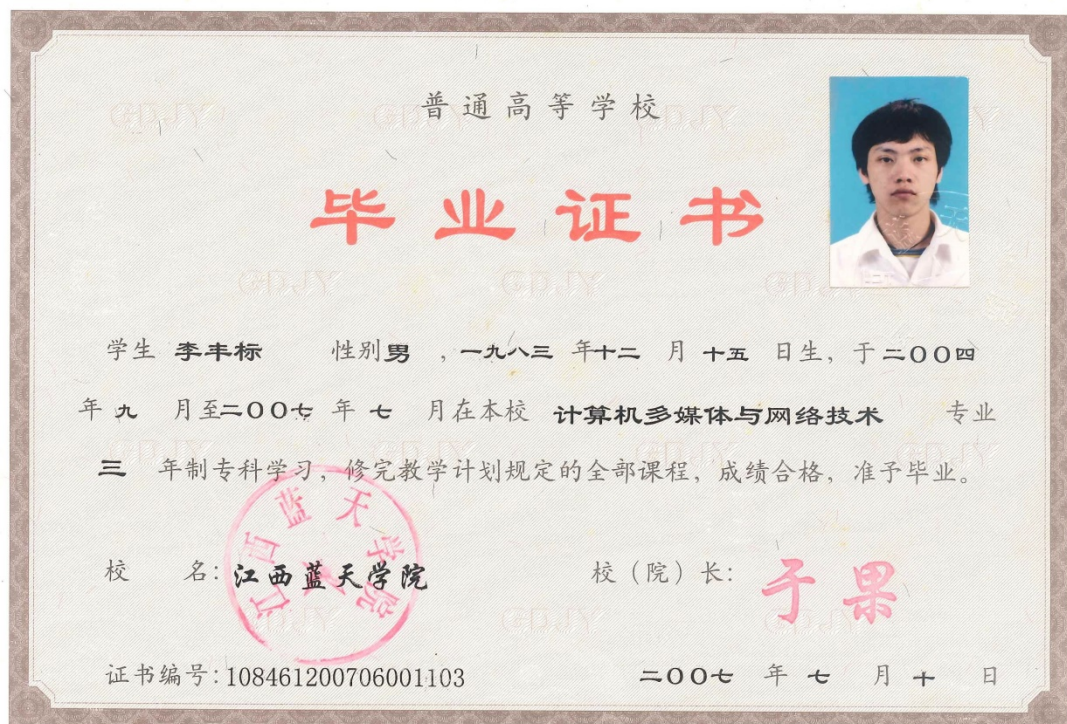 普通高等学校
毕业证书
学生 李丰标 性别男 ,一九八三 年十二 月 十五 日生, 于二〇〇四
年 九 月至二〇〇七 年 七 月在本校 计算机多媒体与网络技术 专业
三 年制专科学习, 修完教学计划规定的全部课程, 成绩合格, 准予毕业。
江西蓝天学院
校 名: 江西蓝天学院 校(院)长: 于果
证书编号: 108461200706001103 二〇〇七 年 七 月 十 日
GDJY
GDJY
GDJY
GDJY
GDJY
GDJY
GDJY
GDJY
GDJY
GDJY